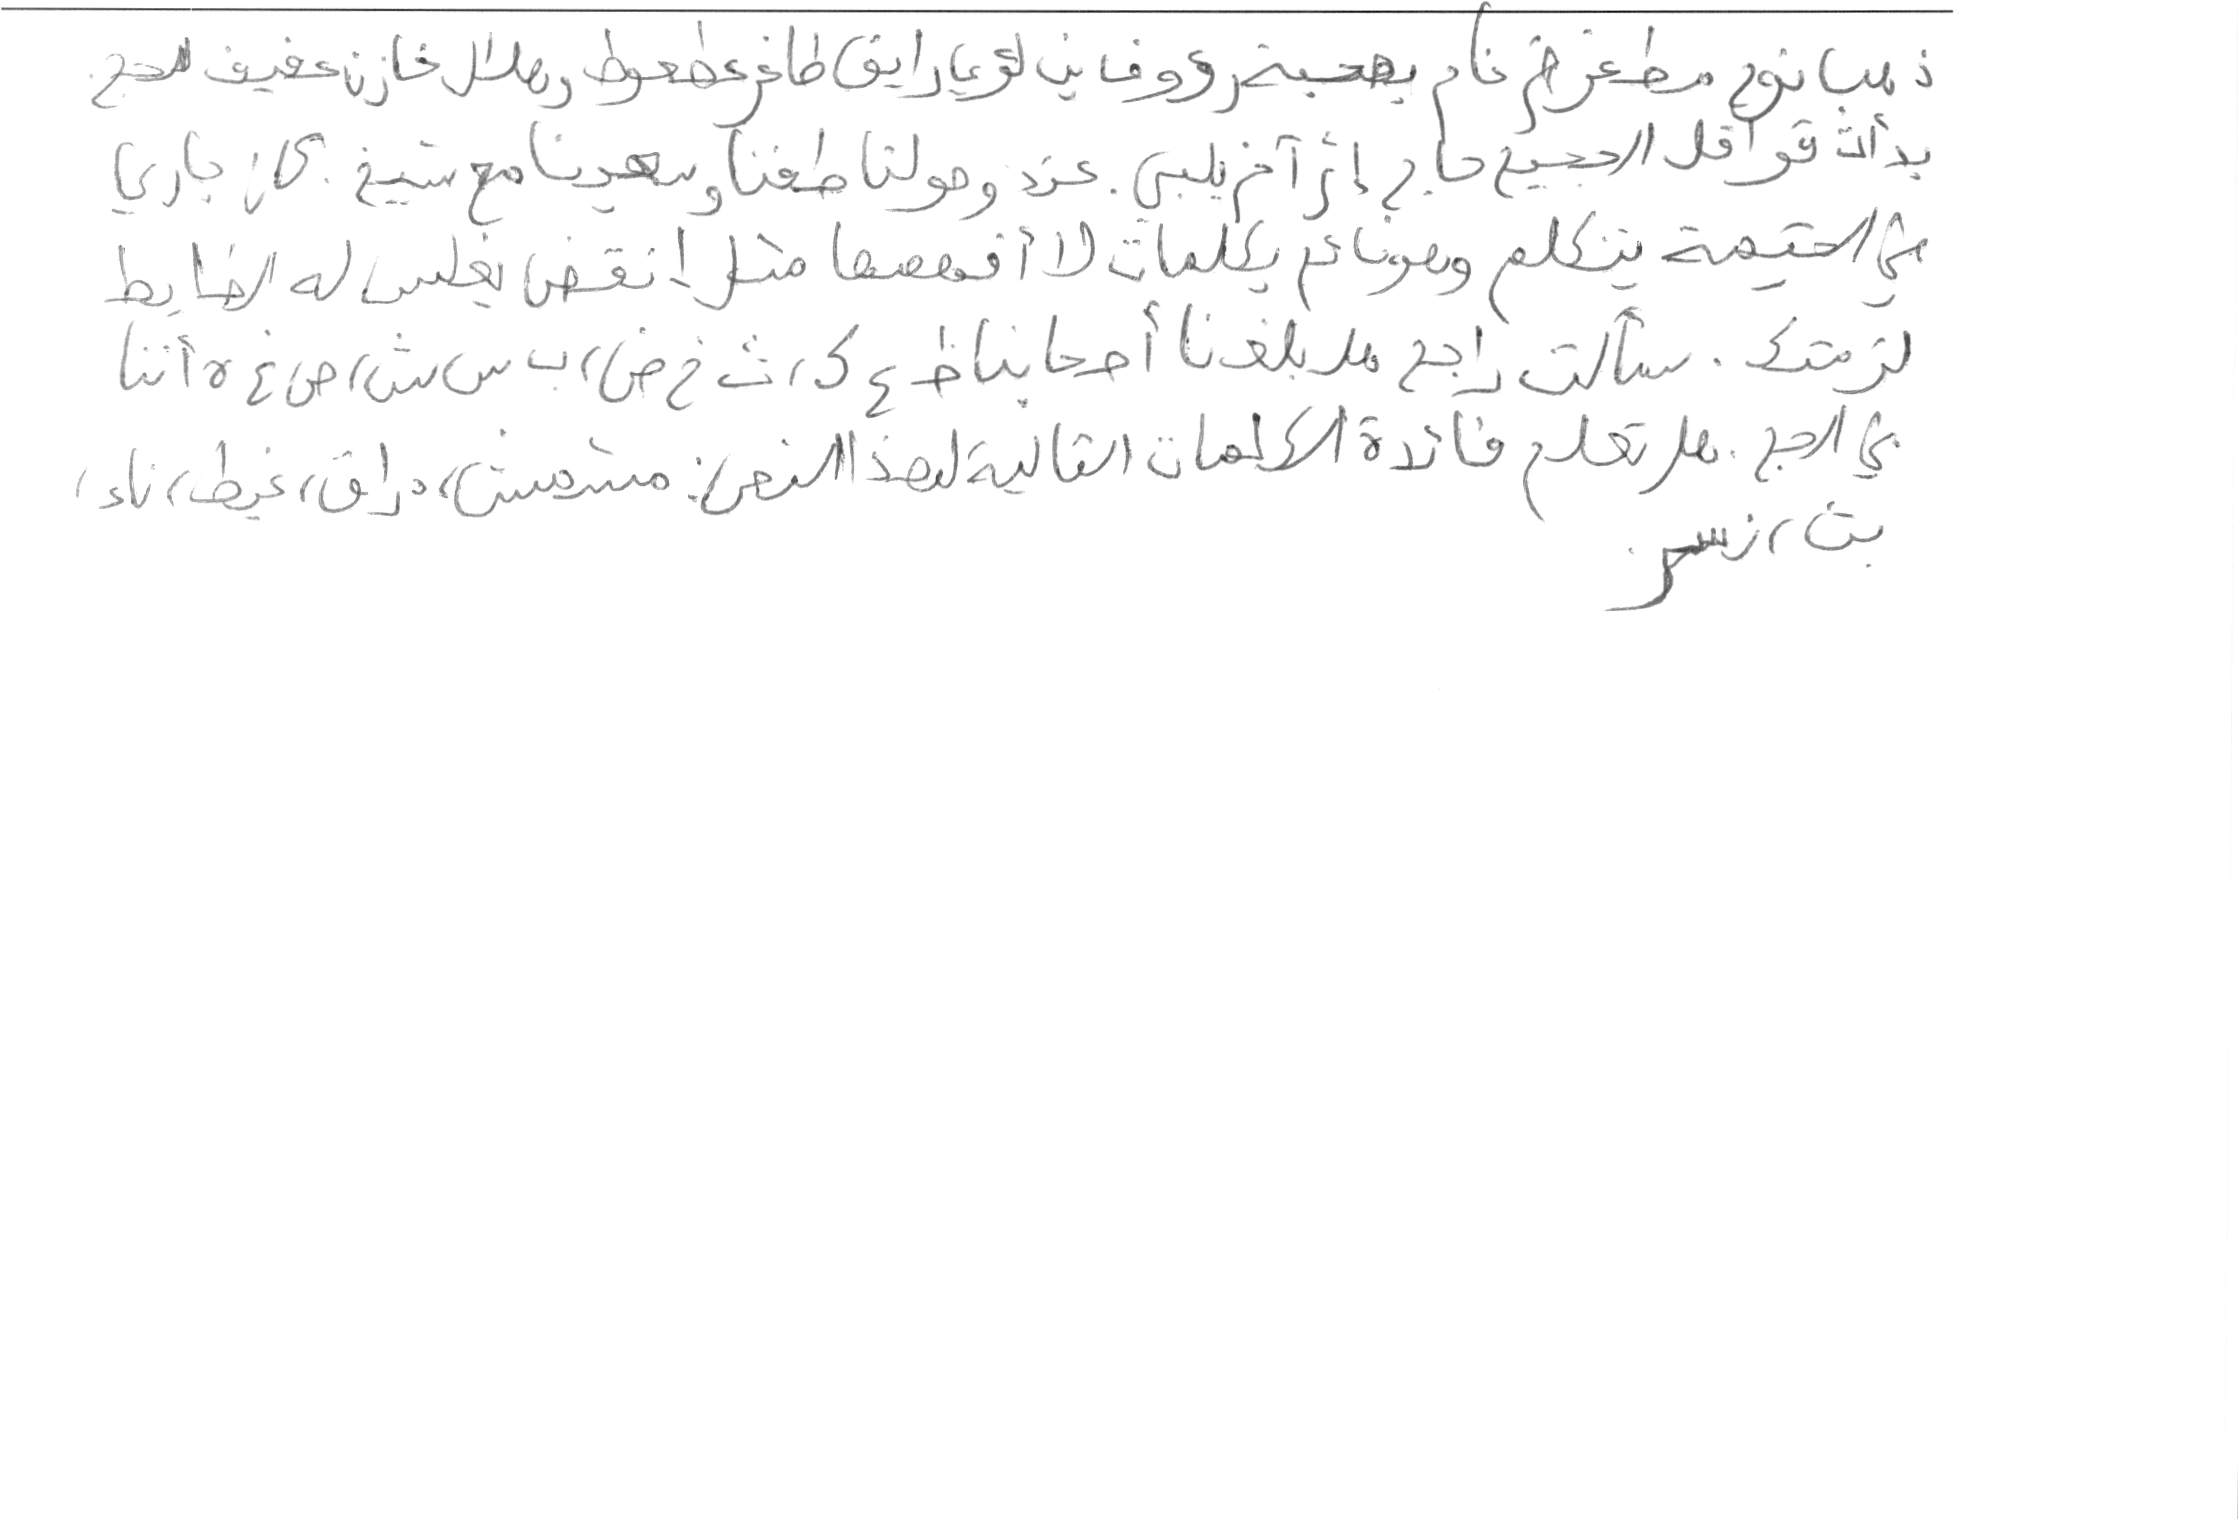 ذهب نوح مظعز ضرغام بصحبة رؤوف اين لؤي رايق ظافر عطعوط وهلال خازن عفيف للحج.
بدأت قوافل الحجيج حاج إثر آخر يلبي. عند وصولنا طفنا وسعينا مع شيخ. كان جاري
في الخيمة يتكلم وهو نائم بكلمات لا أفهمها مثل إنقض يغلس له الضابط
لزمتك. سألت راجح هل بلغنا أصحابنا ظ ع ك، ث خ ض، ب س ش، ص غ ه أننا
في الحج. هل تعلم فائدة الكلمات التالية لهذا النص: مشمش، دراق، غيظ، ناء،
بث، نسر.